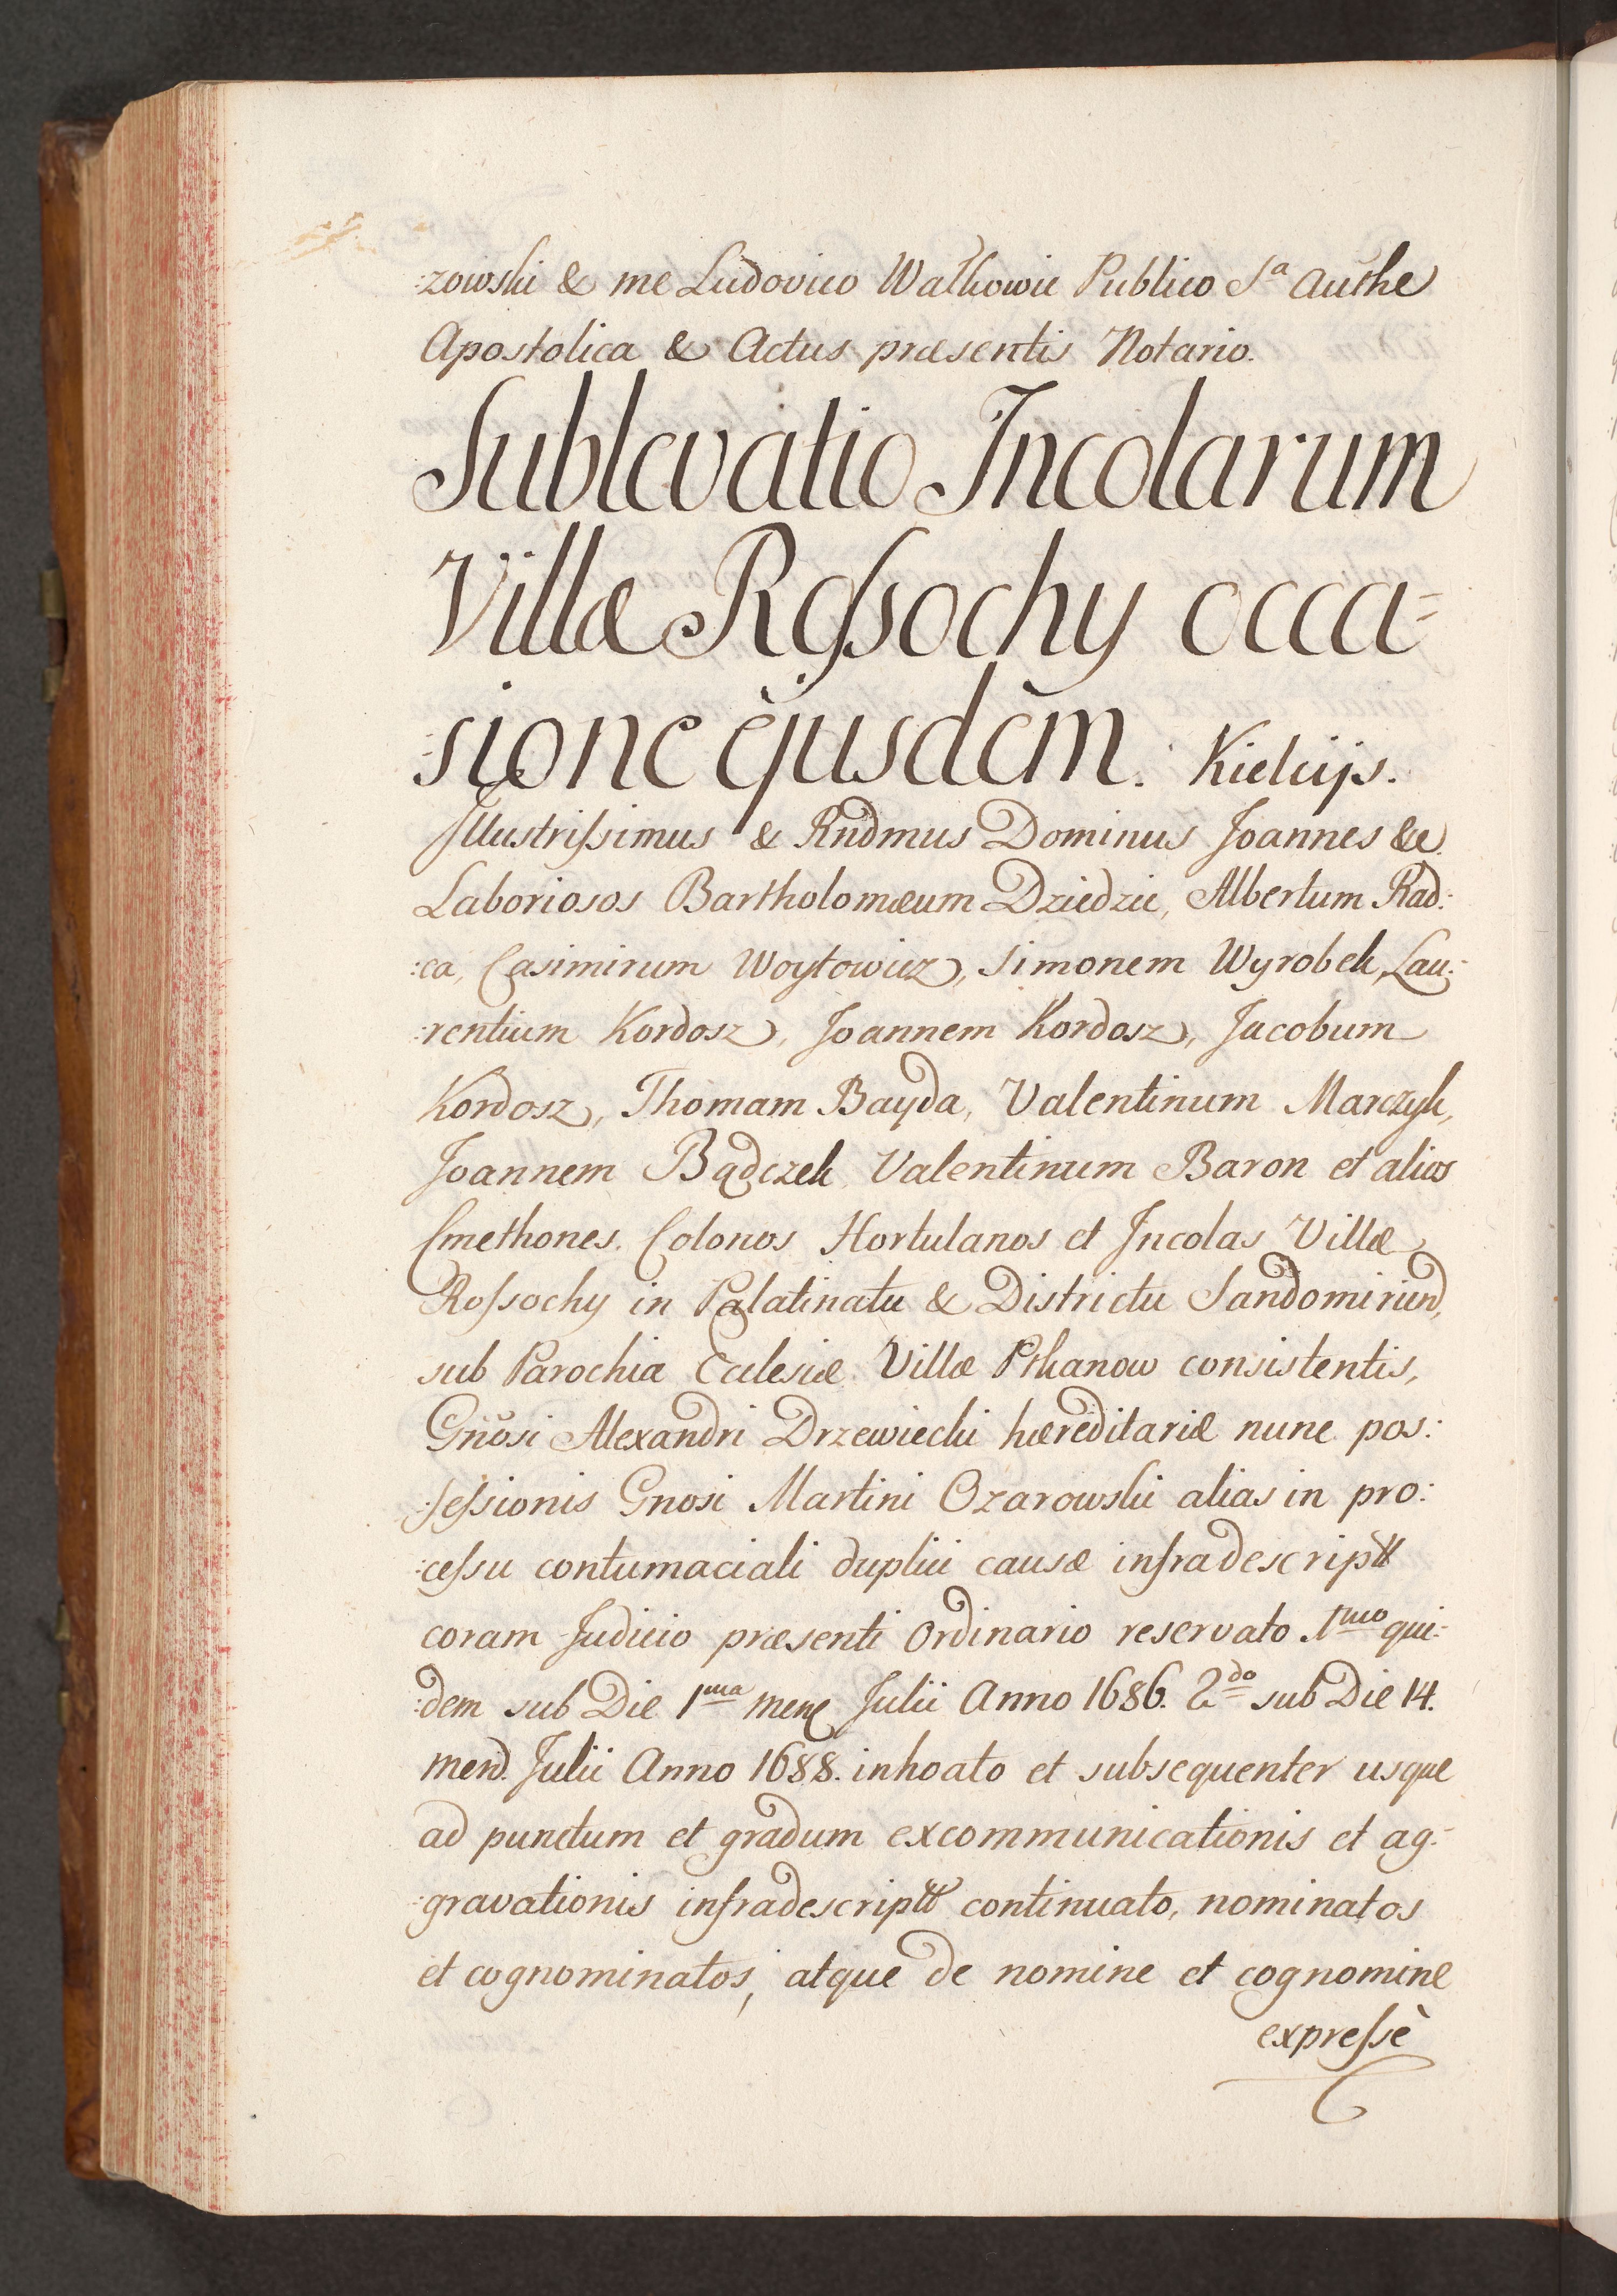 :zowski & me Ludovico Wałkowic Publico Sª Authe
Apostolica & Actus præsentis Notario.
Sublevatio Incolarum
Villæ Rossochy occa-
:sione ejusdem. Kielcijs.
Illustrissimus & Rndmus Dominus Joannes &c
Laboriosos Bartholomæum Dziedzic, Albertum Rad:
:ca, Casimirum Woytowicz, Simonem Wyrobek, Lau:
:rentium Kordosz, Joannem Kordosz, Jacobum
Kordosz, Thomam Bayda, Valentinum Marczyk,
Joannem Bądczek Valentinum Baron et alios
Cmethones. Colonos Hortulanos et Incolas Villæ
Rossochy in Palatinatu & Districtu Sandomirien,
sub Parochia Ecclesiæ Villæ Pkanow consistentis,
Gnosi Alexandri Drzewiecki hæreditariæ nunc pos:
:sessionis Gnosi Martini Ozarowski alias in pro:
:cessu contumaciali duplici causæ infradescriptt
coram Judicio præsenti Ordinario reservato 1mo qui:
:dem sub Die 1ma mens Julii Anno 1686. 2do sub Die 14.
mens. Julii Anno 1688. inhoato et subsequenter usque
ad punctum et gradum excommunicationis et ag:
:gravationis infradescriptt continuato, nominatos
et cognominatos, atque de nomine et cognomine
expressè